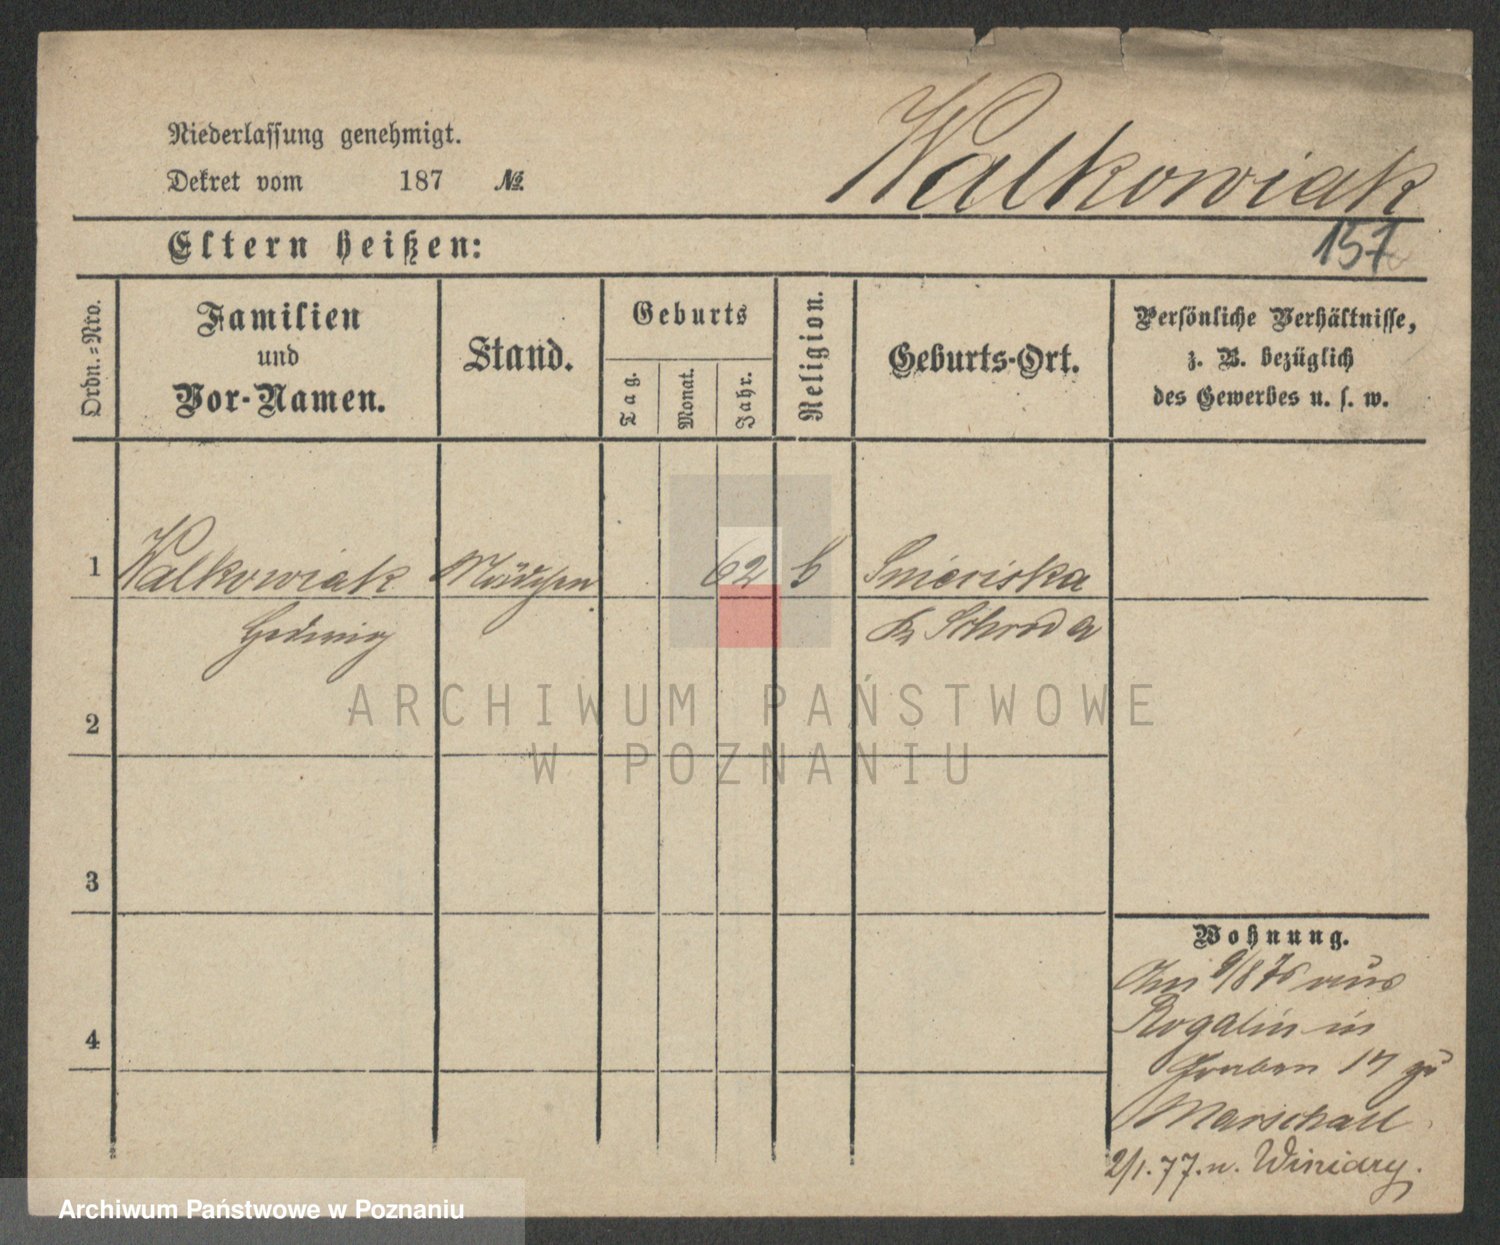 Niederlassung genehmigt.
Dekret vom 187 №
Walkowiak
Eltern heißen:
157
Ordn.-Nro.
Familien
und
Vor-Namen.
Stand.
Geburts
Tag.
Monat.
Jahr.
Religion.
Geburts-Ort.
Persönliche Verhältnisse,
z. B. bezüglich
des Gewerbes u. s. w.
1 Walkowiak Mädchen 62 Snieciska
Hedwig Schroda
2
3
4
Wohnung.
9/8 76 aus
Rogalin in
Graben 17 zu
Marschall
2/1.77. n. Winiary.
ARCHIWUM PAŃSTWOWE
W POZNANIU
Archiwum Państwowe w Poznaniu